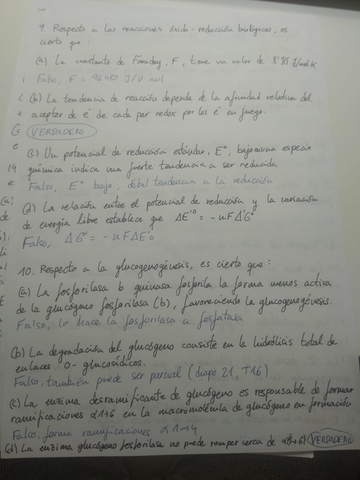 9. Respecto a las reacciones óxido-reducción biológicas, es
cierto que:
(a) La constante de Faraday, F, tiene un valor de 8'35 J/mol·K
Falso, F = 96480 J/V·mol
(b) La tendencia de reacción depende de la afinidad relativa del
aceptor de e⁻ de cada par redox por los e⁻ en juego.
VERDADERO
(c) Un potencial de reducción estándar, E°, bajo una especie
química indica una fuerte tendencia a ser reducida.
Falso, E° bajo, débil tendencia a la reducción
(d) La relación entre el potencial de reducción y la variación
de energía libre establece que ΔE'° = -nFΔG°
Falso, ΔG° = -nFΔE'°
10. Respecto a la glucogenogénesis, es cierto que:
(a) La fosforilasa b quinasa fosforila la forma menos activa
de la glucógeno fosforilasa (b), favoreciendo la glucogenogénesis.
Falso, lo hace la fosforilasa a fosfatasa
(b) La degradación del glucógeno consiste en la hidrólisis total de
enlaces O-glucosídicos.
Falso, también puede ser parcial (diapo 21, T16)
(c) La enzima desramificante de glucógeno es responsable de formar
ramificaciones α1→6 en la macromolécula de glucógeno en formación
Falso, forma ramificaciones α1→4
(d) La enzima glucógeno fosforilasa no puede romper cerca de α(1→6) VERDADERO